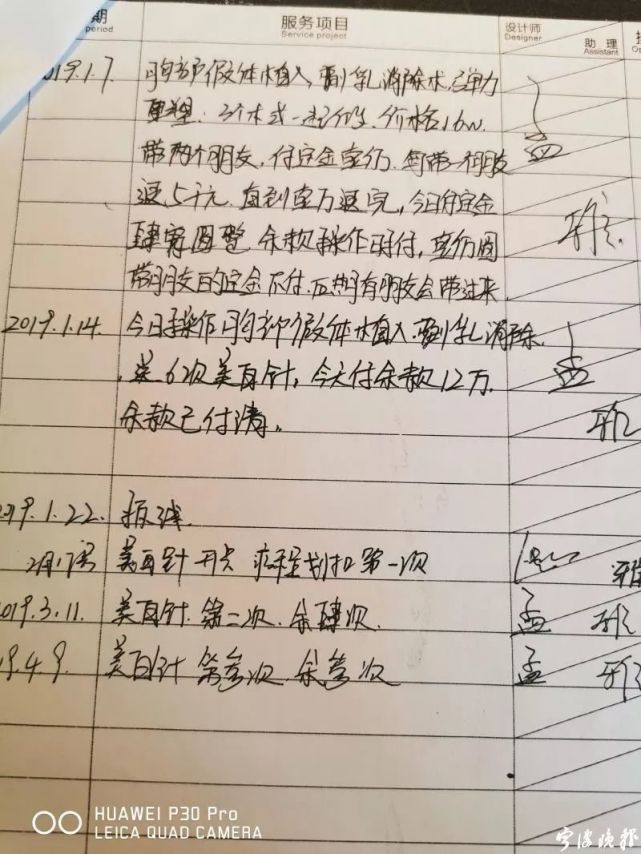 期 服务项目 设计师 助理
period Service project Designer Assistant
2019.1.7. 胸部假体水植入,副乳消除术,
重塑.3个术式一起做.价格16w.
带两个朋友,付定金 每带一个朋友
返5千元. 返完,今日付定金
肆万圆整 余款手术付,
带朋友的定金不付.后期有朋友会带过来
2019.1.14. 今日手术 胸部假体植入.副乳消除.
送6次美白针,今天付余款12万. 孟
余款已付清. 雅
2019.1.22. 拆线.
2月17号 美白针 开卡 疗程划扣第一次 雅
2019.3.11. 美白针.第二次.余肆次. 孟 雅
19.4.9. 美白针 第叁次.余叁次 孟 雅
HUAWEI P30 Pro
LEICA QUAD CAMERA
宁波晚报